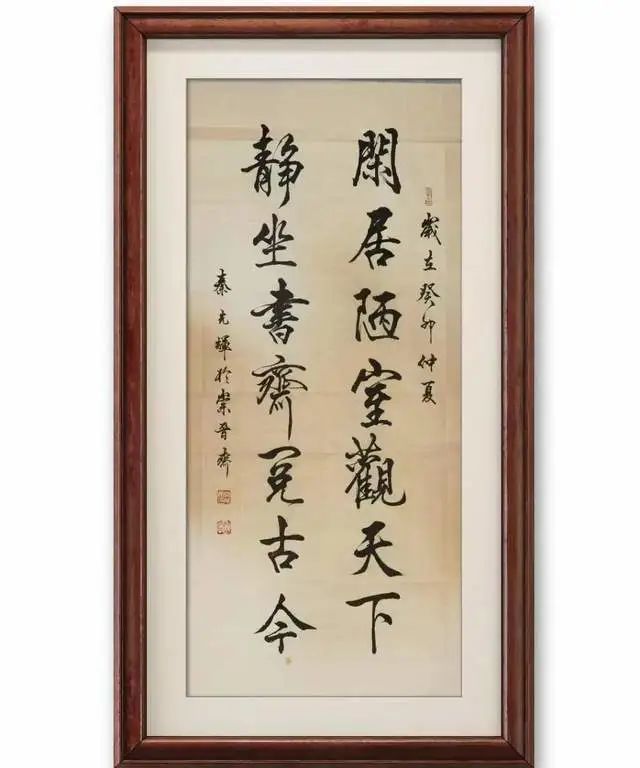 歲在癸卯仲夏
閑居陋室觀天下
静坐書齋閱古今
秦光輝於崇晋齋